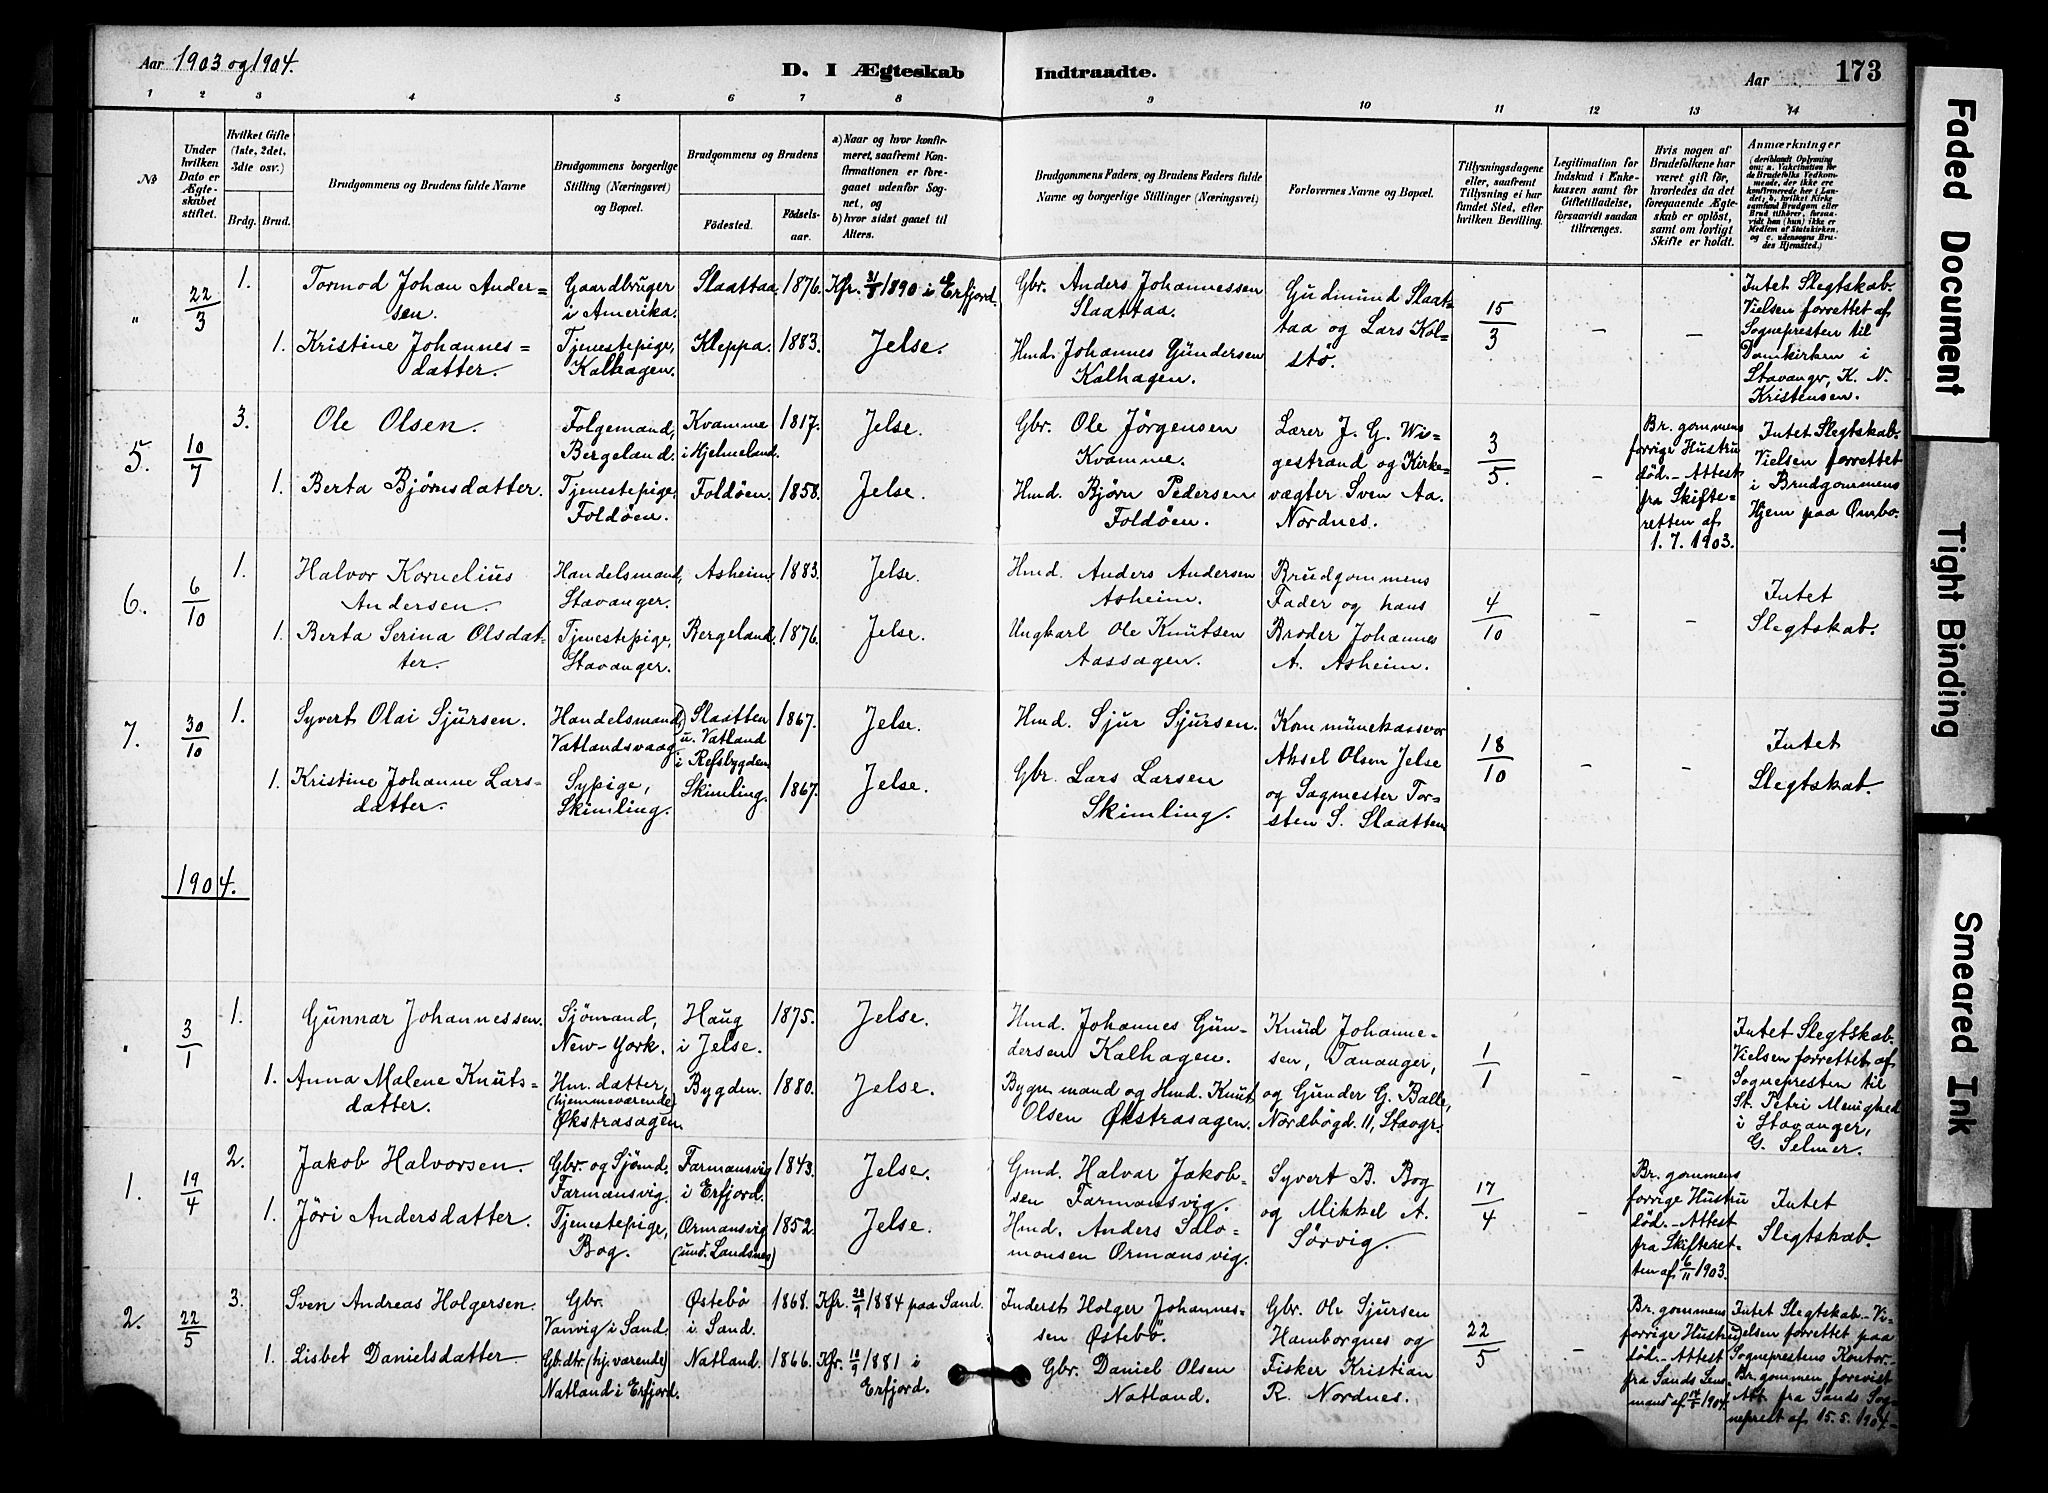 Aar 1903 og 1904.
D. I Ægteskab Indtraadte.
Aar
173
1 2 3 4 5 6 7 8 9 10 11 12 13 14
No
Under hvilken Dato er Ægteskabet stiftet.
Hvilket Gifte (1ste, 2det, 3die osv.)
Brdg. Brud.
Brudgommens og Brudens fulde Navne
Brudgommens borgerlige Stilling (Næringsvei) og Bopæl.
Brudgommens og Brudens
Fødested.
Fødselsaar.
a) Naar og hvor konfirmeret, saafremt Konfirmationen er foregaaet udenfor Sognet, og
b) hvor sidst gaaet til Alters.
Brudgommens Faders, og Brudens Faders fulde Navne og borgerlige Stillinger (Næringsvei)
Forlovernes Navne og Bopæl.
Tillysningsdagene eller, saafremt Tillysning ei har fundet Sted, efter hvilken Bevilling.
Legitimation for Indskud i Enkekassen samt for Giftetilladelse, forsaavidt saadan tiltrænges.
Hvis nogen af Brudefolkene har været gift før, hvorledes da det foregaaende Ægteskab er opløst, samt om lovligt Skifte er holdt.
Anmærkninger
(deriblandt Oplysning om: a. Vaccination for de Brudefolks Vedkommende, der ikke ere konfirmerede her i Landet, b. hvilket Kirkesamfund Brudgom eller Brud tilhører, forsaavidt han (hun) ikke er Medlem af Statskirken, og c. udensogns Brudes Hjemsted.)
" 22/3 1. Tormod Johan Andersen. Gaardbruger i Amerika. Slaattaa. 1876. Kfr. 31/8 1890 i Erfjord. Gbr. Anders Johannessen Slaattaa. Gudmund Slaattaa og Lars Kolstø. 15/3 – – Intet Slegtskab. Vielsen forrettet af Sognepresten til Domkirken i Stavanger, K. N. Kristensen.
1. Kristine Johannesdatter. Tjenestepige, Kalhagen. Kleppa. 1883. Jelse. Hmd. Johannes Gundersen Kalhagen.
5. 10/7 3. Ole Olsen. Folgemand, Bergeland. Kvamme i Hjelmeland. 1817. Jelse. Gbr. Ole Jörgensen Kvamme. Lærer J. G. Wigestrand og Kirkevægter Sven Aa. Nordnes. 3/5. – Br. gommens forrige Hustru död. – Attest fra Skifteretten af 1. 7. 1903. Intet Slegtskab. Vielsen forrettet i Brudgommens Hjem paa Ombo.
1. Berta Bjørnsdatter. Tjenestepige, Foldøen. Foldøen. 1858. Jelse. Hmd. Bjørn Pedersen Foldøen.
6. 6/10 1. Halvor Kornelius Andersen. Handelsmand, Stavanger. Asheim. 1883. Jelse. Hmd. Anders Andersen Asheim. Brudgommens Fader og hans Broder Johannes A. Asheim. 4/10 – – Intet Slegtskab.
1. Berta Serina Olsdatter. Tjenestepige, Stavanger. Bergeland. 1876. Jelse. Ungkarl Ole Knutsen Aassagen.
7. 30/10 1. Syvert Olai Sjursen. Handelsmand, Vatlandsvaag. Slaatten u. Vatland i Refsbygden. 1867. Jelse. Hmd. Sjur Sjursen. Kommunekasserer Aksel Olsen Jelse og Sagmester Torsten S. Slaatten. 18/10 – – Intet Slegtskab.
1. Kristine Johanne Larsdatter. Sypige, Skimling. Skimling. 1867. Jelse. Gbr. Lars Larsen Skimling.
1904.
" 3/1 1. Gunnar Johannessen. Sjømand, New-York. Haug i Jelse. 1875. Jelse. Hmd. Johannes Gundersen Kalhagen. Knud Johannesen, Tananger, og Gunder G. Balle, Nordbögd. 11, Stavgr. 1/1 – – Intet Slegtskab. Vielsen forrettet af Sognepresten til St. Petri Menighed i Stavanger, G. Selmer.
1. Anna Malene Knutsdatter. Hm. datter, (hjemmeværende) Økstrasagen. Bygden. 1880. Jelse. Bygn mand og Hmd. Knut Olsen Økstrasagen.
1. 19/4 2. Jakob Halvorsen. Gbr. og Sjømd. Farmansvig. Farmansvig i Erfjord. 1843. Jelse. Gmd. Halvar Jakobsen Farmansvig. Syvert B. Bog og Mikkel A. Sörvig. 17/4 – Br. gommens forrige Hustru död. – Attest fra Skifteretten af 6/11 1903. Intet Slegtskab.
1. Jöri Andersdatter. Tjenestepige, Bog. Ormansvig (und. Landsnes) 1852. Jelse. Hmd. Anders Salomonsen Ormansvig.
2. 22/5 3. Sven Andreas Holgersen. Gbr. Vanvig i Sand. Østebø i Sand. 1868. Kfr. 28/9 1884 paa Sand. Inderst Holger Johannessen Østebø. Gbr. Ole Sjursen Hamborgnes og Fisker Kristian R. Nordnes. 22/5 – Br. gommens forrige Hustru död. – Attest fra Sands Lensmand af 14/5 1904. Intet Slegtskab. – Vielsen forrettet paa Sogneprestens Kontor. – Br. gommen forevist Att. fra Sands Sogneprest af 15. 5. 1904. –
1. Lisbet Danielsdatter. Gb. dtr. (hj. værende) Natland i Erfjord. Natland. 1866. Kfr. 10/7 1881 i Erfjord. Gbr. Daniel Olsen Natland.
Faded Document
Tight Binding
Smeared Ink